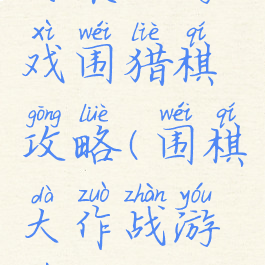 xì wéi liè qí
戏围猎棋
gōng lüè wéi qí
攻略(围棋
dà zuò zhàn yóu
大作战游